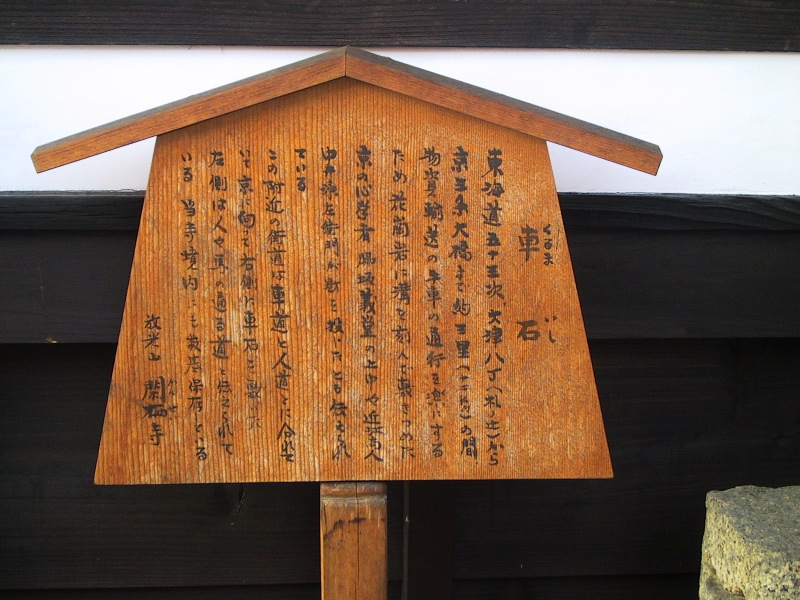 車石
くるまいし
東海道五十三次、大津八丁(札ノ辻)から
京三条大橋まで約三里(十二粁)の間
物資輸送の牛車の通行を楽にする
ため 花崗岩に溝を刻んで敷きつめた
京の心学者 脇坂義堂の上申や近江商人
中井源左衛門が財を投じたと伝えられ
ている
この附近の街道は車道と人道とに分れて
いて 京に向って右側に車石を敷いた
左側は人や馬の通る道と伝えられて
いる 当寺境内にも数基保存している
放光山 閑栖寺
かんせいじ